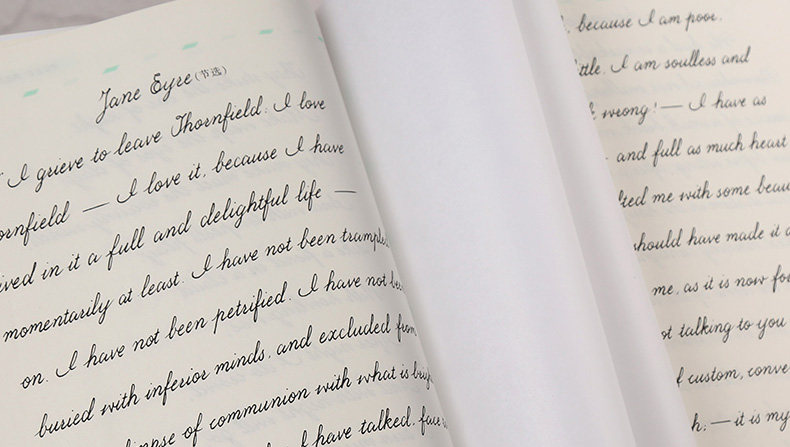 Jane Eyre (节选)
I grieve to leave Thornfield. I love
— I love it, because I have
in it a full and delightful life —
momentarily at least. I have not been
on. I have not been petrified. I have not
buried with inferior minds, and excluded from
of communion with what is
I have talked, face
because I am poor,
I am soulless and
wrong! — I have as
and full as much heart
me with some
should have made it
me, as it is now
talking to you
custom,
— it is my